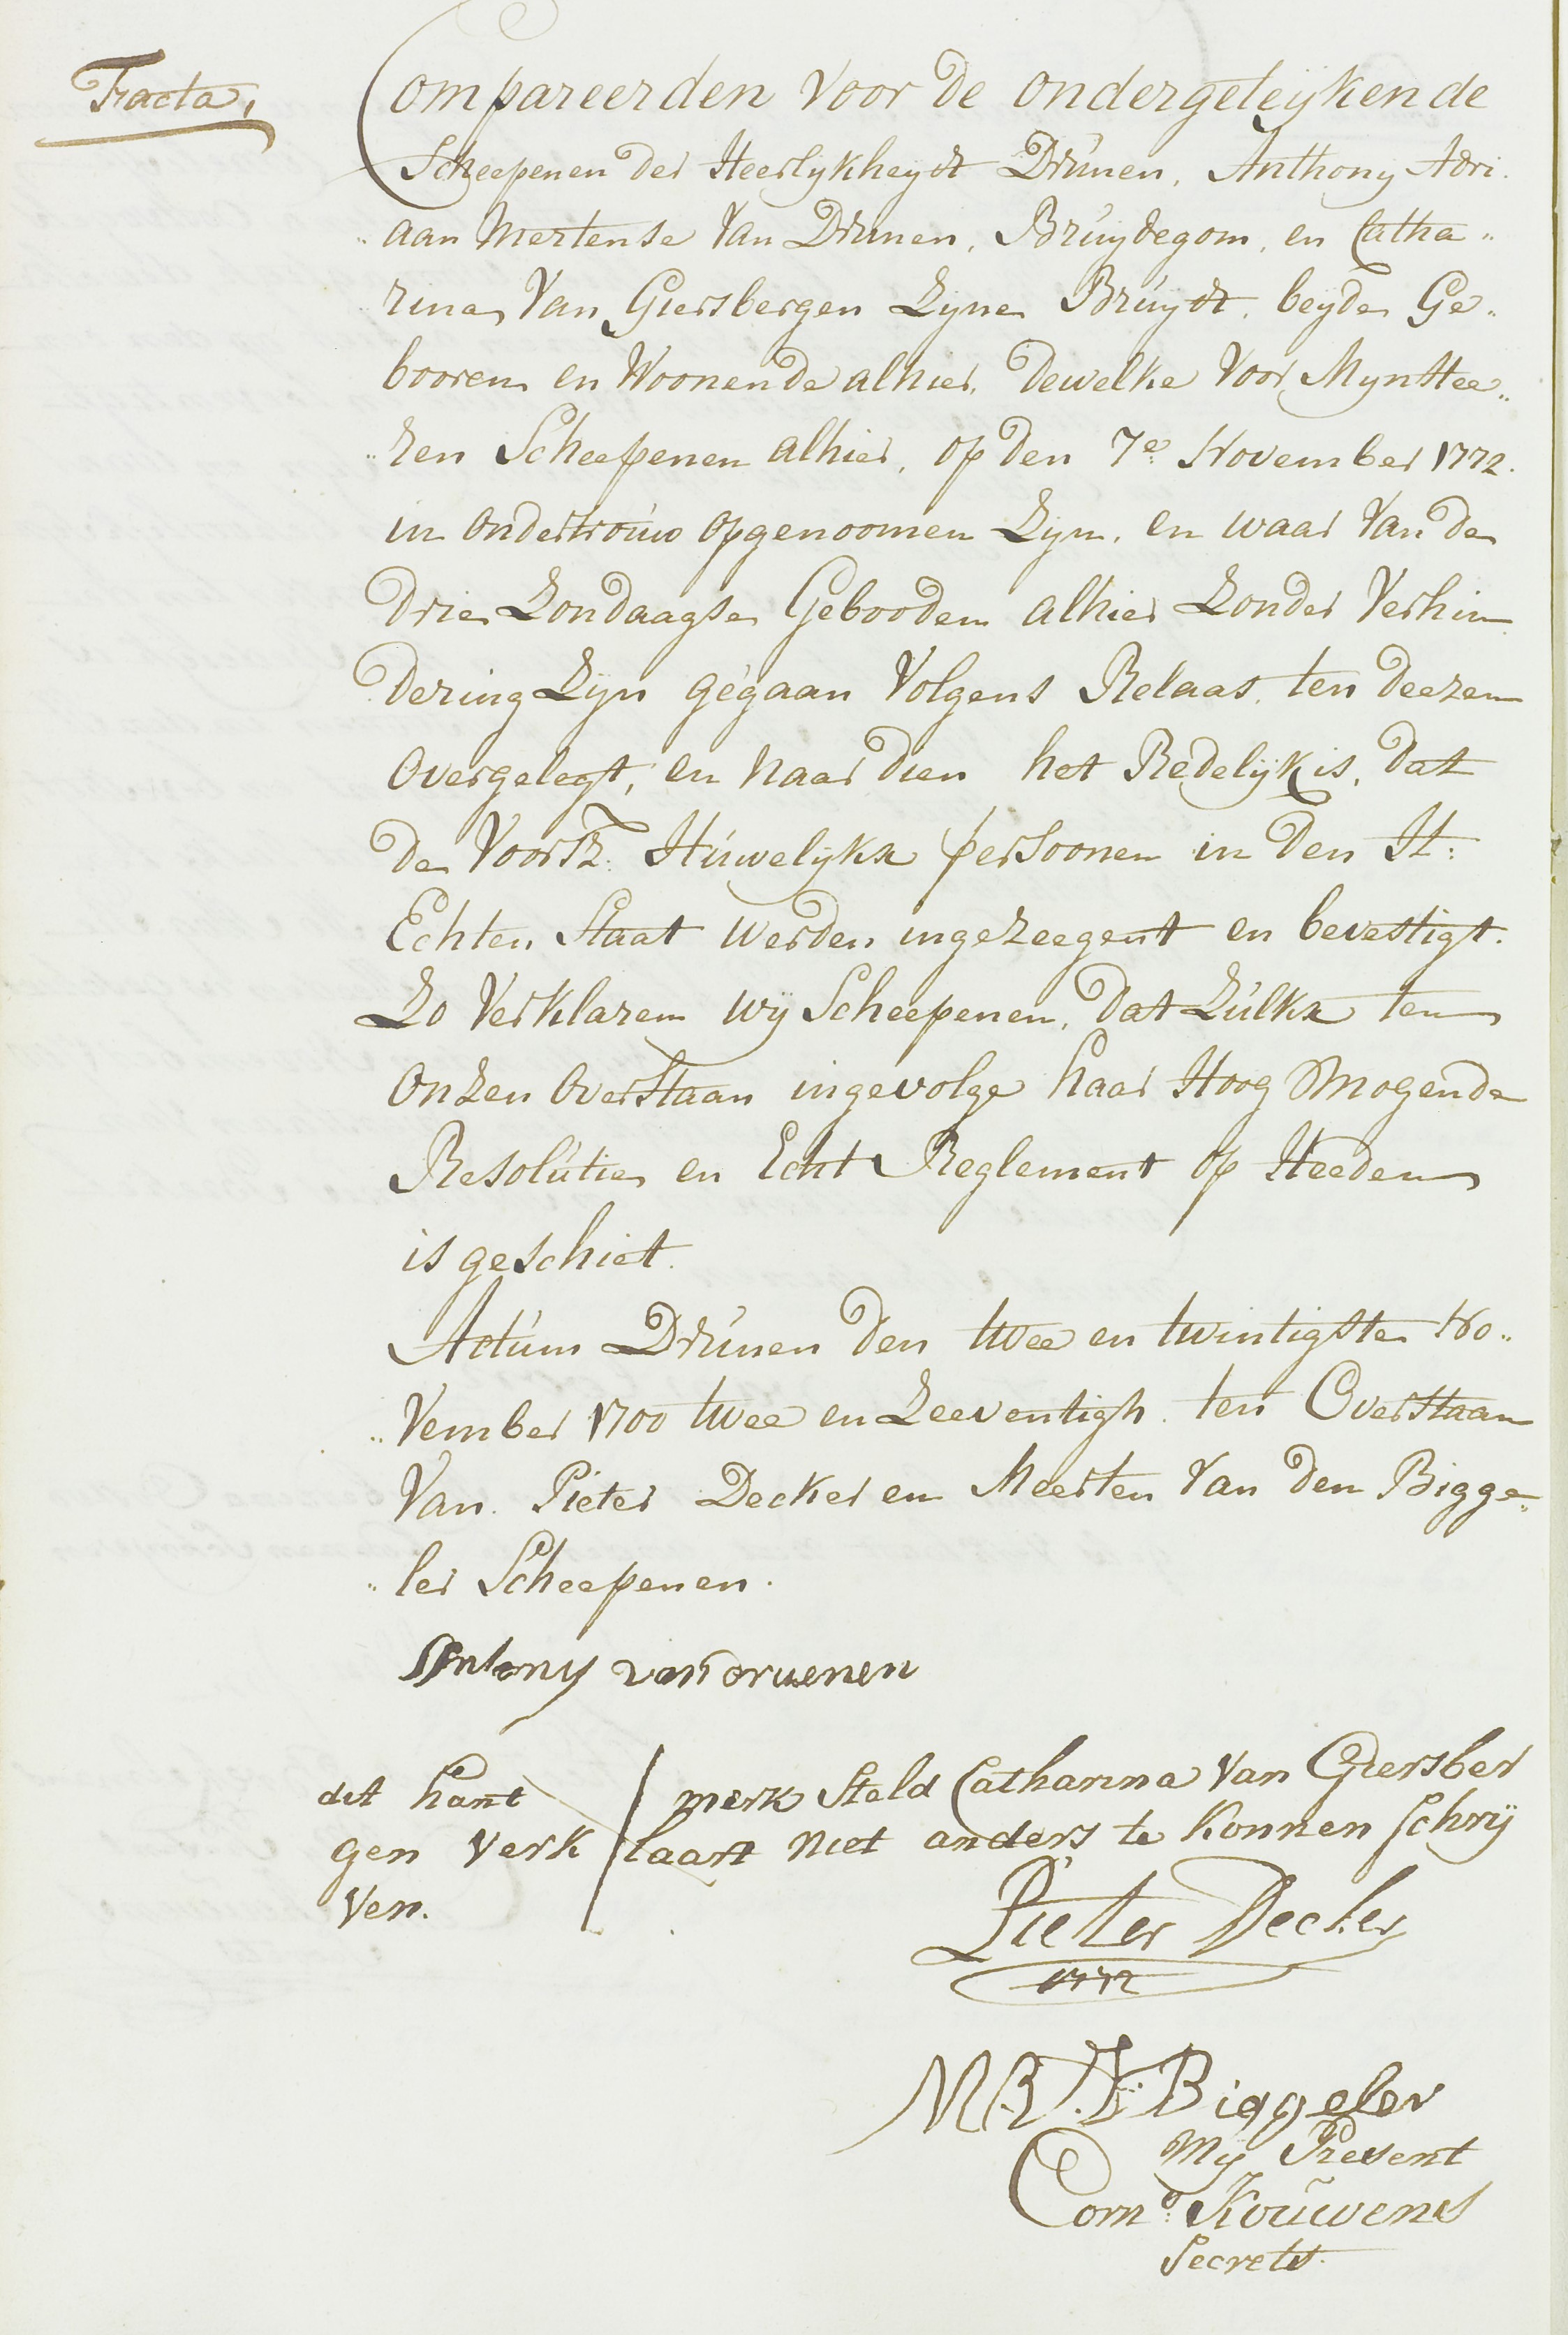 Tracta,
Compareerden Voor de ondergeteijkende
Scheepenen der Heerlykheydt Drúnen, Anthony Adri.
aan Mertense Van Drunen, Brúydegom, en Catha„
rina Van Giersbergen Zyne Brúydt, beyde Ge„
booren en Woonende alhier, dewelke Voor Myn Hee„
„ren Scheepenen alhier, op den 7e November 1772.
in Ondertroúw opgenoomen Zyn, en waar Van de
drie Zondaagse Gebooden alhier Zonder Verhin
dering Zyn gegaan Volgens Relaas, ten deezen
Overgelegt, en naar dien het Redelijk is, dat
de Voorsz. Húwelijkse persoonen in den H:
Echten Staat werden ingezeegent en bevestigt.
Zo Verklaren wij Scheepenen, dat Zúlks ten
Onzen Overstaan ingevolge haar Hoog Mogende
Resolútie en Echt Reglement op Heeden
is geschiet.
Actúm Drúnen den twee en twintigste No„
„vember 1700 twee en Zeeventigh. ten Overstaan
Van Pieter Decker en Meerten Van den Bigge„
„ler Scheepenen.
Antony van druenen
dit hant merk Steld Catharina Van Giersber
gen verk laart niet anders te konnen schrij
ven.
Pieter Decker
1772
MR V D Biggeler
Mij Present
Corns. Koúwens
Secrets.